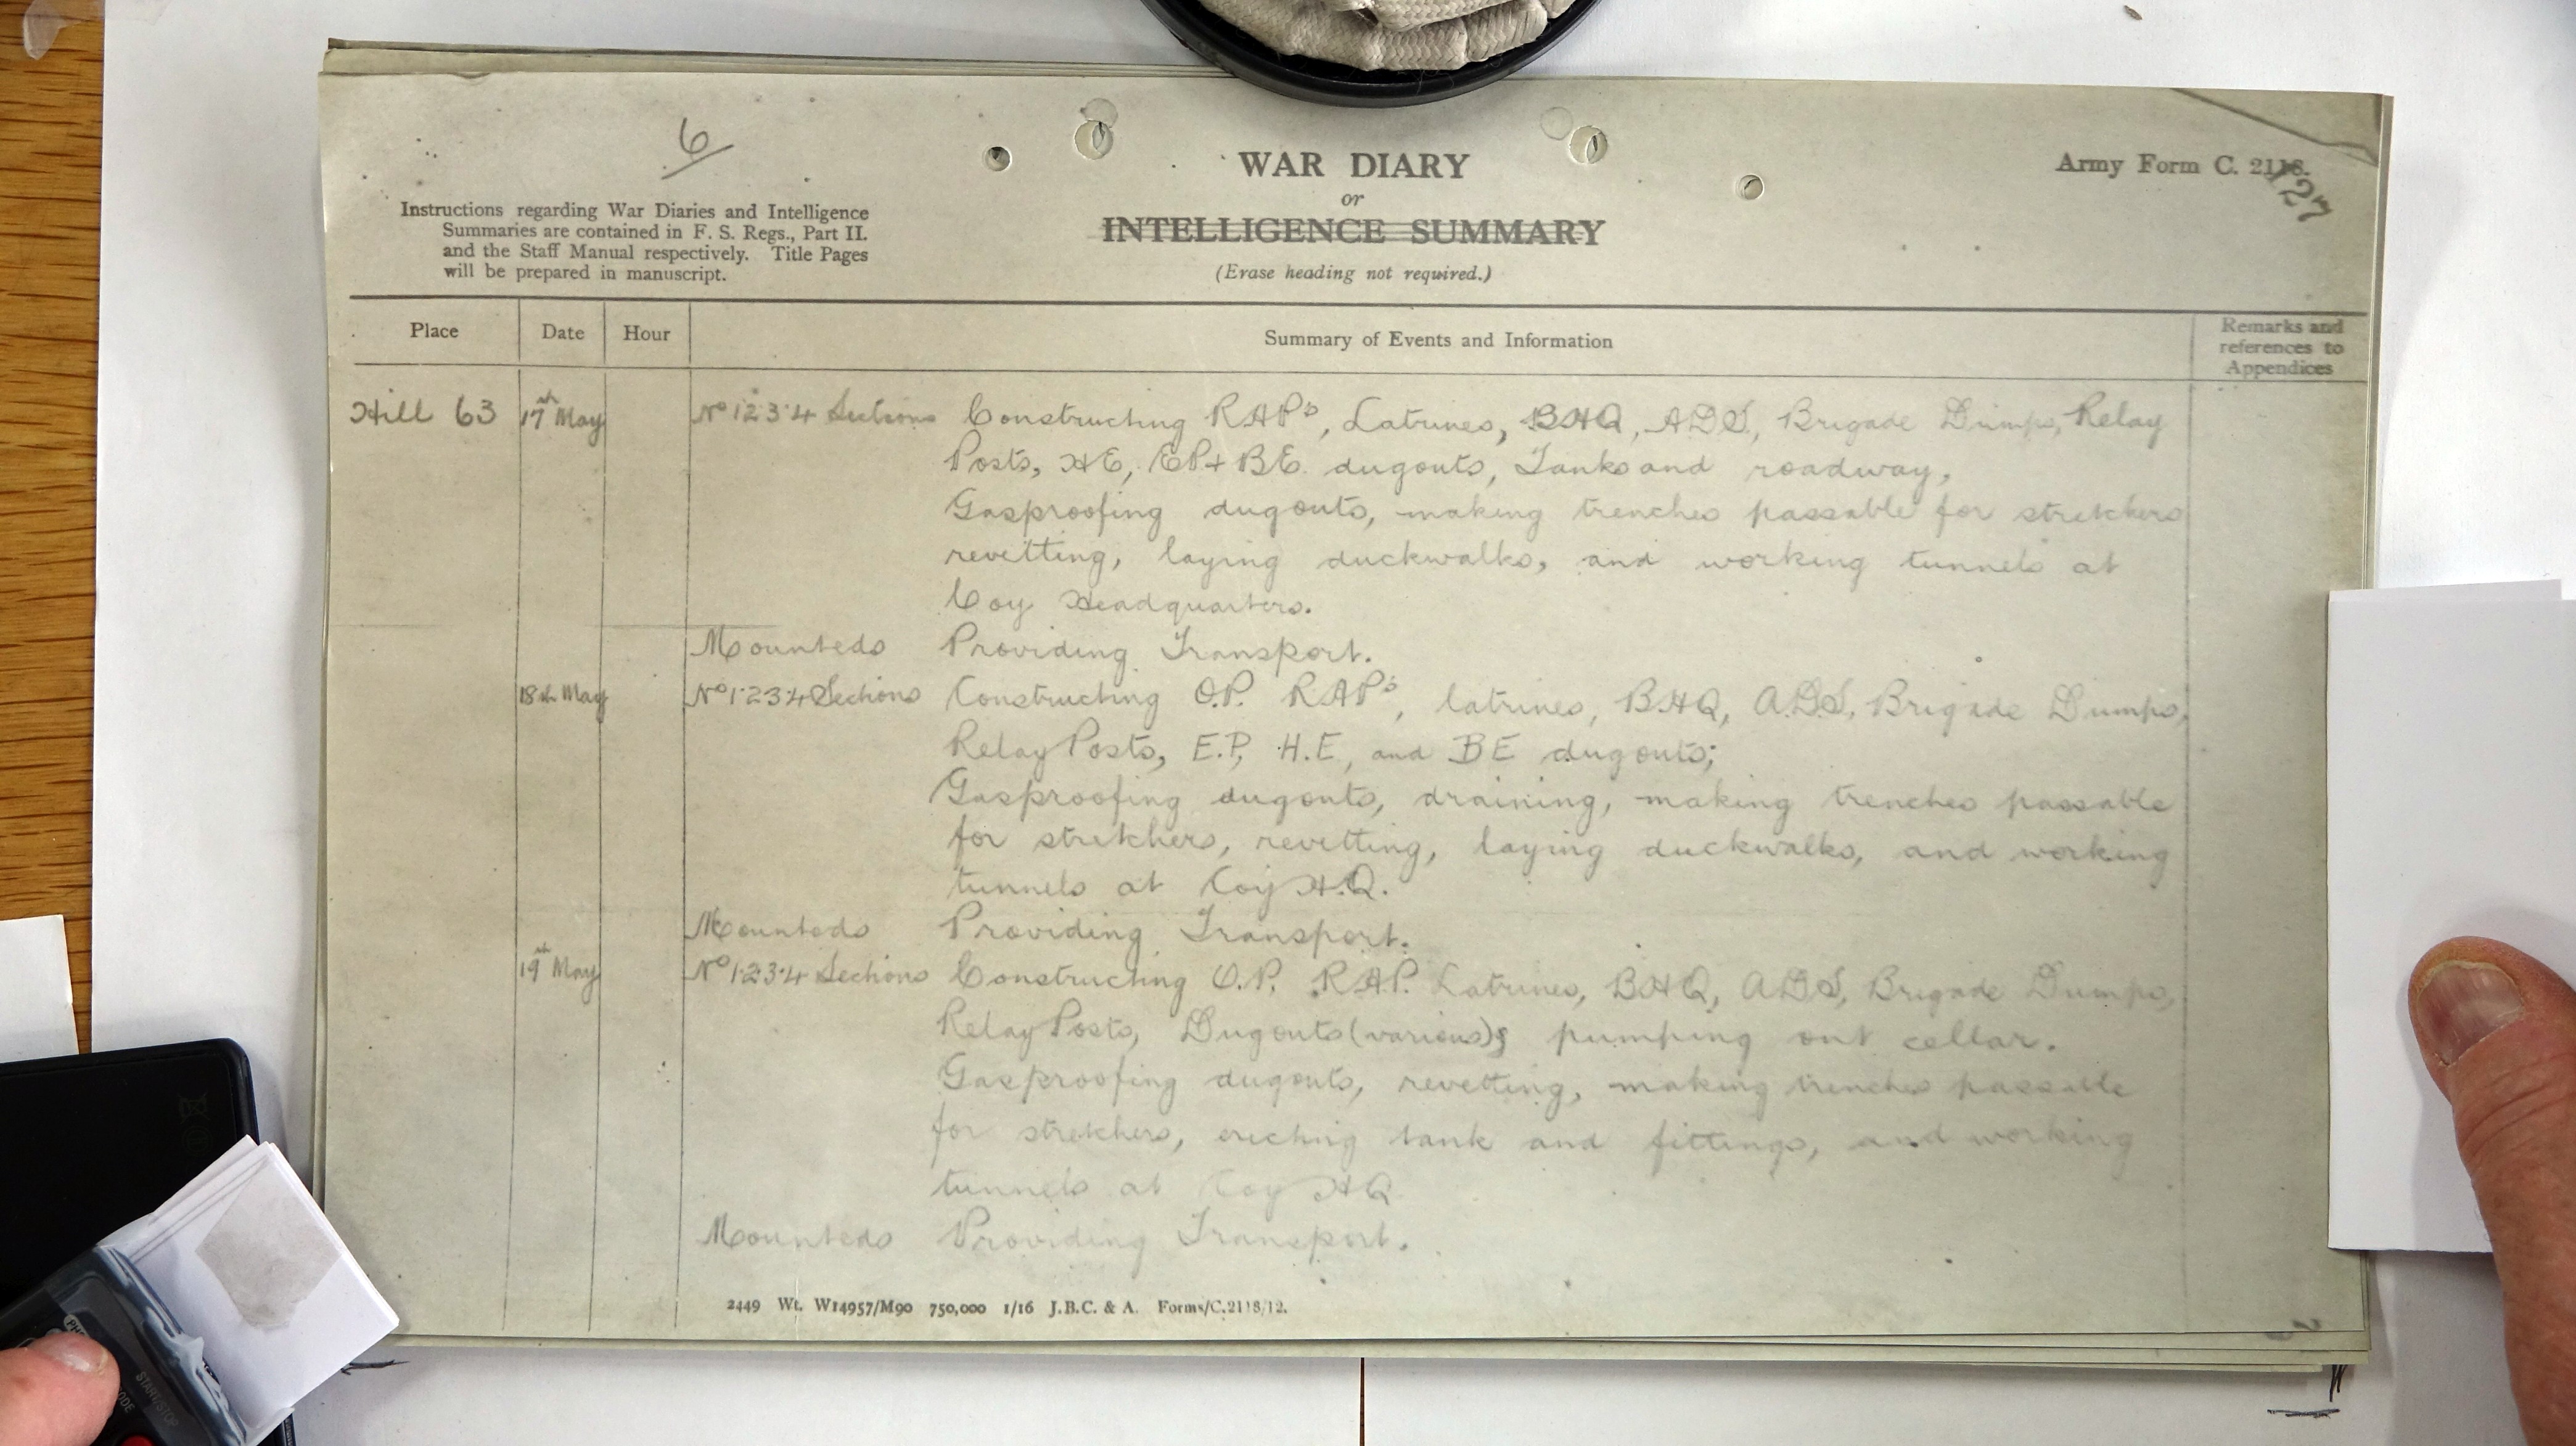 6
WAR DIARY
or
INTELLIGENCE SUMMARY
(Erase heading not required.)
Army Form C. 2118.
127
Instructions regarding War Diaries and Intelligence
Summaries are contained in F. S. Regs., Part II.
and the Staff Manual respectively. Title Pages
will be prepared in manuscript.
Place Date Hour Summary of Events and Information Remarks and
references to
Appendices
Hill 63 17th May Nº 1·2·3·4 Sections Constructing RAPs, Latrines, BHQ, ADS, Brigade Dumps, Relay
Posts, HE, EP + BE. dugouts, Tanks and roadway.
Gasproofing dugouts, making trenches passable for stretchers
revetting, laying duckwalks, and working tunnels at
Coy Headquarters.
Mounteds Providing Transport.
18th May Nº 1·2·3·4 Sections Constructing O.P. RAPs, latrines, BHQ, A.D.S, Brigade Dumps,
Relay Posts, E.P, H.E, and BE dugouts;
Gasproofing dugouts, draining, making trenches passable
for stretchers, revetting, laying duckwalks, and working
tunnels at Coy H.Q.
Mounteds Providing Transport.
19th May Nº 1·2·3·4 Sections Constructing O.P. RAP. Latrines, BHQ, ADS, Brigade Dumps,
Relay Posts, Dugouts (various); pumping out cellar.
Gasproofing dugouts, revetting, making trenches passable
for stretchers, erecting tank and fittings, and working
tunnels at Coy HQ
Mounteds Providing Transport.
2449 Wt. W14957/M90 750,000 1/16 J.B.C. & A. Forms/C.2118/12.
START/STOP